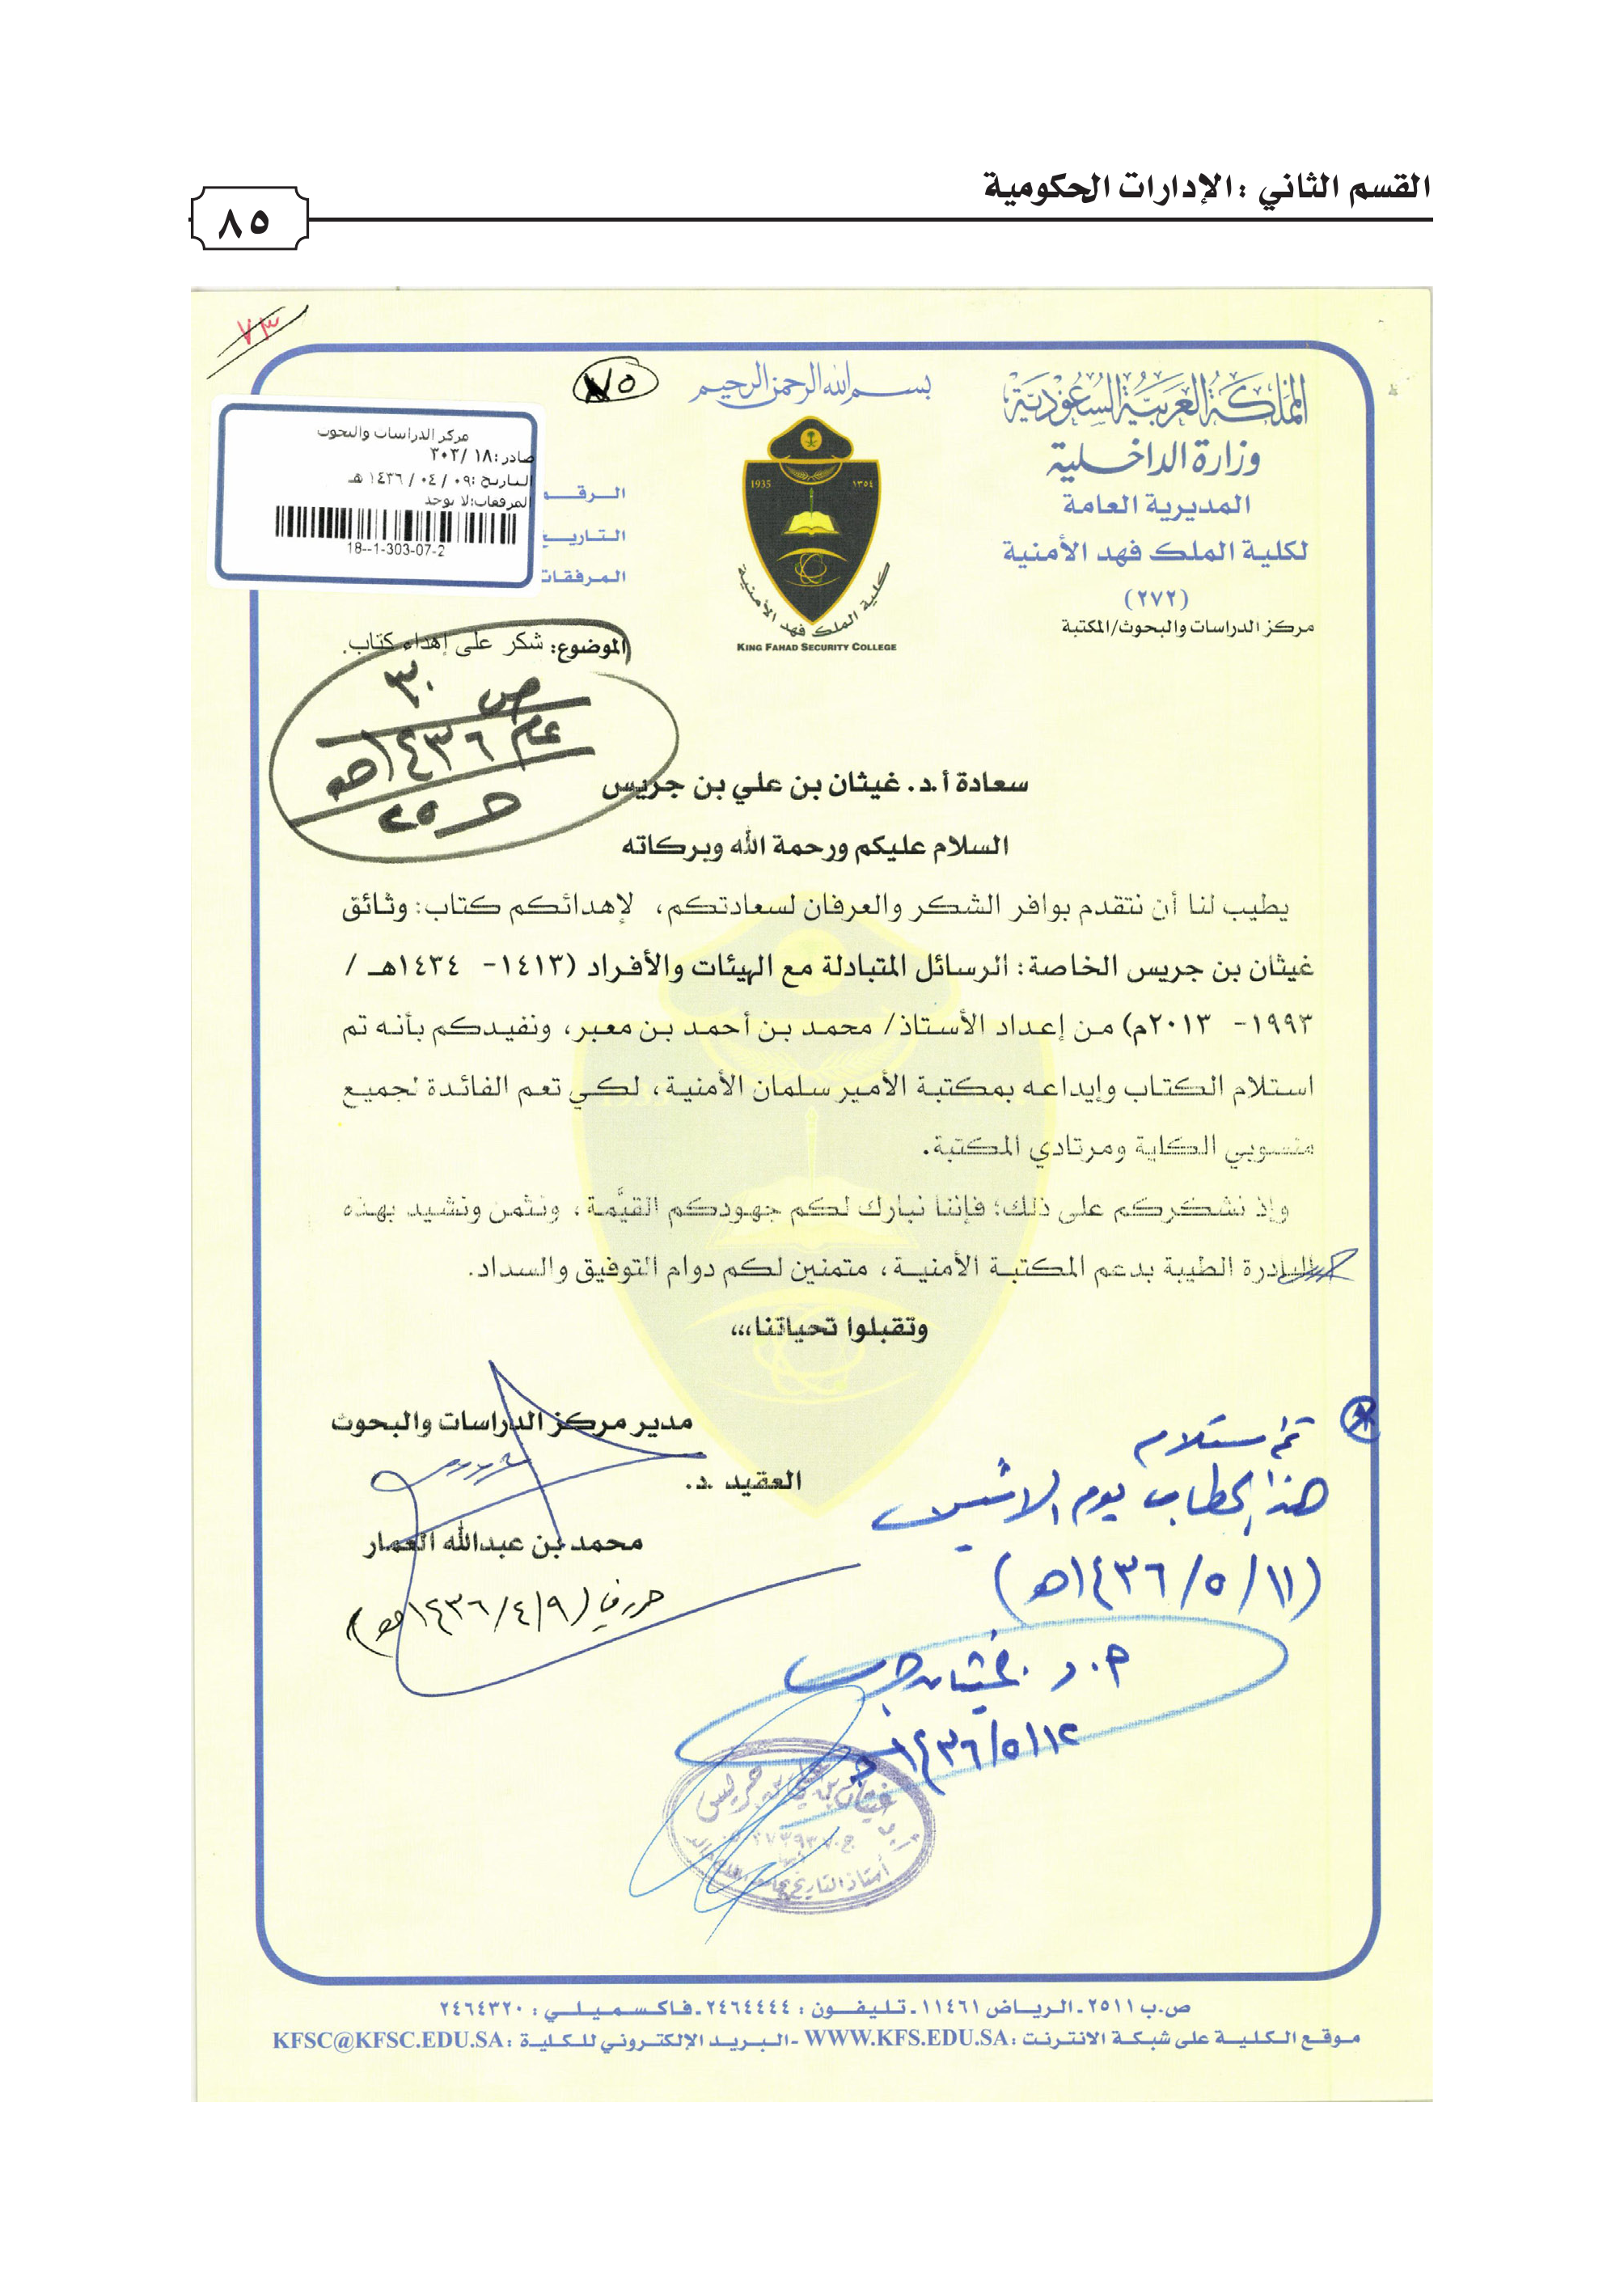 القسم الثاني : الإدارات الحكومية
٨٥
٧٣
٧٥
بسم الله الرحمن الرحيم
المملكة العربية السعودية
وزارة الداخلية
المديرية العامة
لكلية الملك فهد الأمنية
(٢٧٢)
مركز الدراسات والبحوث/المكتبة
1935 ١٣٥٤
كلية الملك فهد الأمنية
KING FAHAD SECURITY COLLEGE
الرقم
التاريخ
المرفقات
مركز الدراسات والبحوث
صادر: ١٨ /٣٠٣
التاريخ: ٠٩ / ٠٤ / ١٤٣٦ هـ
المرفقات: لا يوجد
18--1-303-07-2
الموضوع: شكر على إهداء كتاب.
ص ٣٠
عام ١٤٣٦هـ
ج ٢٥
سعادة أ.د. غيثان بن علي بن جريس
السلام عليكم ورحمة الله وبركاته
يطيب لنا أن نتقدم بوافر الشكر والعرفان لسعادتكم، لإهدائكم كتاب: وثائق
غيثان بن جريس الخاصة: الرسائل المتبادلة مع الهيئات والأفراد (١٤١٣- ١٤٣٤هـ /
١٩٩٣- ٢٠١٣م) من إعداد الأستاذ/ محمد بن أحمد بن معبر، ونفيدكم بأنه تم
استلام الكتاب وإيداعه بمكتبة الأمير سلمان الأمنية، لكي تعم الفائدة لجميع
منسوبي الكلية ومرتادي المكتبة.
وإذ نشكركم على ذلك؛ فإننا نبارك لكم جهودكم القيَّمة، ونثمن ونشيد بهذه
المبادرة الطيبة بدعم المكتبة الأمنية، متمنين لكم دوام التوفيق والسداد.
وتقبلوا تحياتنا،،،
مدير مركز الدراسات والبحوث
العقيد .د.
محمد بن عبدالله العمار
حرر في (١٤٣٦/٤/٩هـ)
تم استلام
هذا الخطاب يوم الاثنين
(١١/ ٥/ ١٤٣٦هـ)
أ.د. غيثان جريس
١٤٣٦/٥/١٢هـ
غيثان بن علي بن جريس
أستاذ التاريخ بجامعة الملك خالد
ص.ب ٢٥١١ ـ الرياض ١١٤٦١ ـ تليفون : ٢٤٦٤٤٤٤ ـ فاكسميلي : ٢٤٦٤٣٢٠
موقع الكلية على شبكة الانترنت :WWW.KFS.EDU.SA ـ البريد الإلكتروني للكلية :KFSC@KFSC.EDU.SA